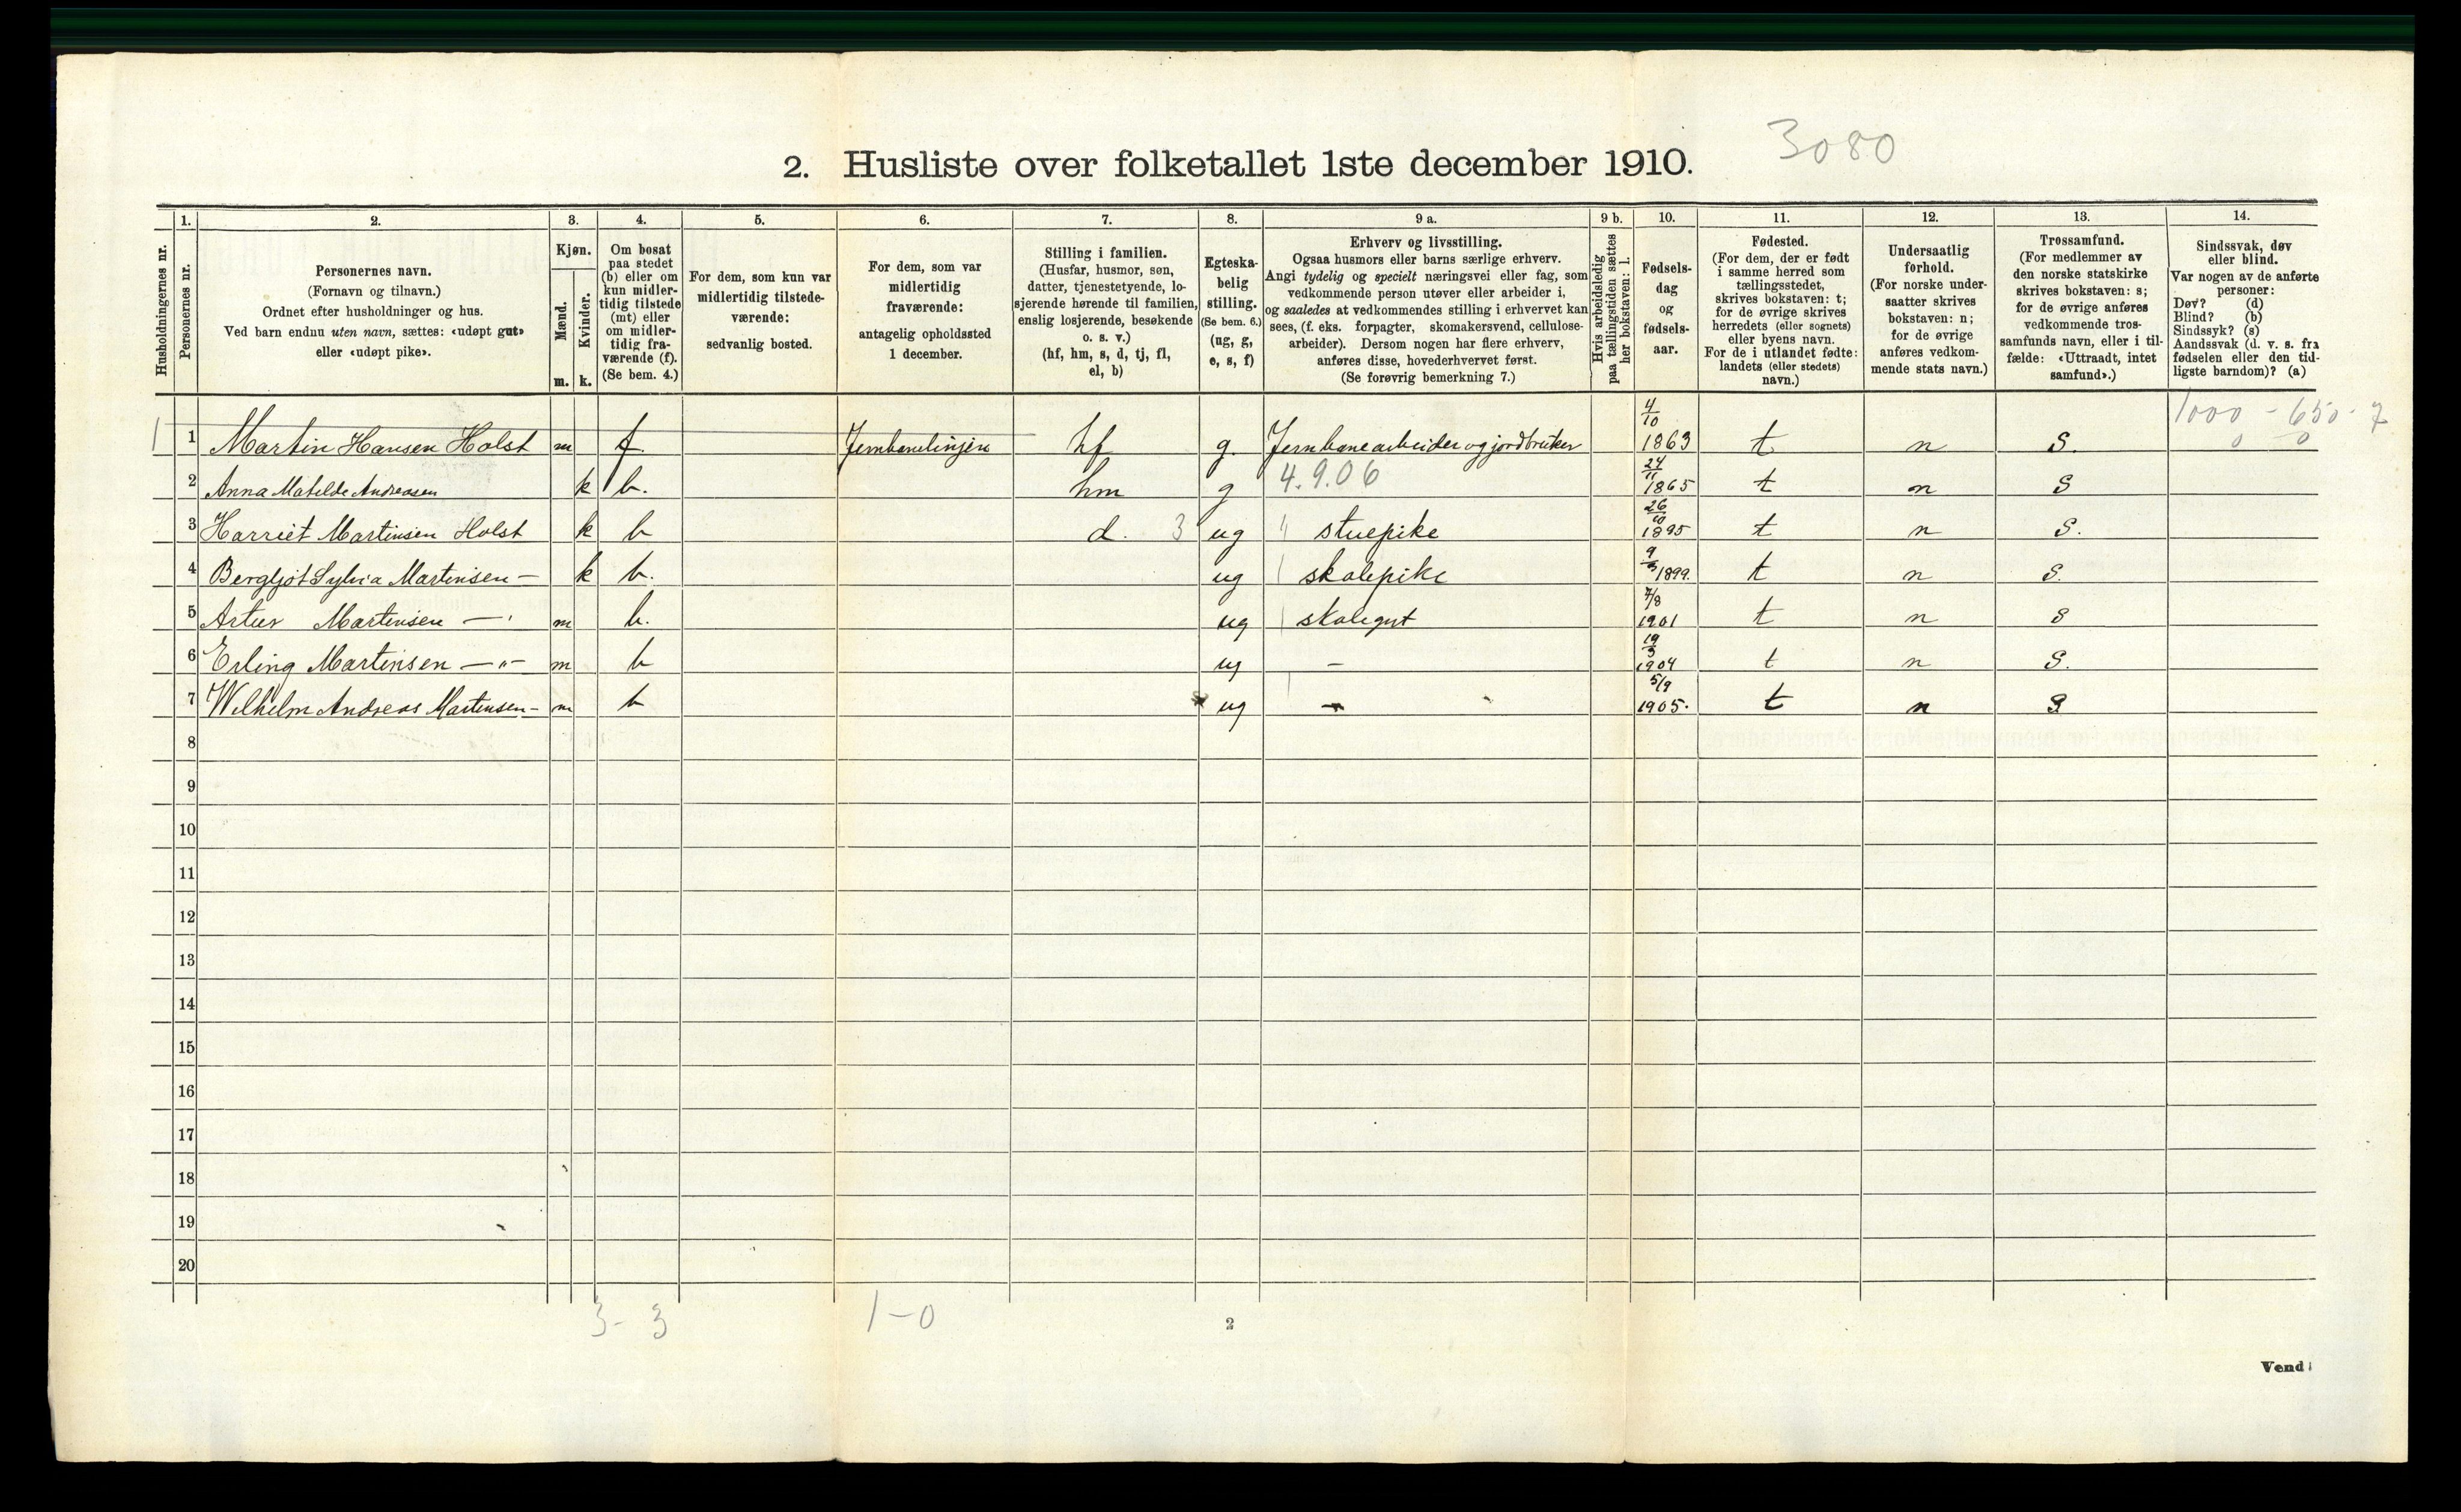 3080
2. Husliste over folketallet 1ste december 1910.
Husholdningernes nr.
1.
Personernes nr.
2.
Personernes navn.
(Fornavn og tilnavn.)
Ordnet efter husholdninger og hus.
Ved barn endnu uten navn, sættes: «udøpt gut»
eller «udøpt pike».
3.
Kjøn.
Mænd.
Kvinder.
m. k.
4.
Om bosat
paa stedet
(b) eller om
kun midler-
tidig tilstede
(mt) eller
om midler-
tidig fra-
værende (f).
(Se bem. 4.)
5.
For dem, som kun var
midlertidig tilstede-
værende:
sedvanlig bosted.
6.
For dem, som var
midlertidig
fraværende:
antagelig opholdssted
1 december.
7.
Stilling i familien.
(Husfar, husmor, søn,
datter, tjenestetyende, lo-
sjerende hørende til familien,
enslig losjerende, besøkende
o. s. v.)
(hf, hm, s, d, tj, fl,
el, b)
8.
Egteska-
belig
stilling.
(Se bem. 6.)
(ug, g,
e, s, f)
9 a.
Erhverv og livsstilling.
Ogsaa husmors eller barns særlige erhverv.
Angi tydelig og specielt næringsvei eller fag, som
vedkommende person utøver eller arbeider i,
og saaledes at vedkommendes stilling i erhvervet kan
sees, (f. eks. forpagter, skomakersvend, cellulose-
arbeider). Dersom nogen har flere erhverv,
anføres disse, hovederhvervet først.
(Se forøvrig bemerkning 7.)
9 b.
Hvis arbeidsledig
paa tællingstiden sættes
her bokstaven: l.
10.
Fødsels-
dag
og
fødsels-
aar.
11.
Fødested.
(For dem, der er født
i samme herred som
tællingsstedet,
skrives bokstaven: t;
for de øvrige skrives
herredets (eller sognets)
eller byens navn.
For de i utlandet fødte:
landets (eller stedets)
navn.)
12.
Undersaatlig
forhold.
(For norske under-
saatter skrives
bokstaven: n;
for de øvrige
anføres vedkom-
mende stats navn.)
13.
Trossamfund.
(For medlemmer av
den norske statskirke
skrives bokstaven: s;
for de øvrige anføres
vedkommende tros-
samfunds navn, eller i til-
fælde: «Uttraadt, intet
samfund».)
14.
Sindssvak, døv
eller blind.
Var nogen av de anførte
personer:
Døv? (d)
Blind? (b)
Sindssyk? (s)
Aandssvak (d. v. s. fra
fødselen eller den tid-
ligste barndom)? (a)
1000 - 650 - 7
0 0
1 1 Martin Hansen Holst m f Jernbanelinjen hf g. Jernbanearbeider og jordbruker 4/10 1863 t n S.
2 Anna Matelde Andreasen k b. hm g 4.9.06 24/11 1865 t n S
3 Harriet Martinsen Holst k b d. 3 ug stuepike 26/10 1895 t n S.
4 Bergljot Sylvia Martinsen — k b. ug skolepike 9/3 1899. t n S.
5 Artur Martinsen — m b. ug skolegut 7/8 1901 t n S
6 Erling Martinsen —"— m b ug — 19/3 1904 t n S.
7 Wilhelm Andreas Martinsen — m b ug — 5/9 1905. t n S
8
9
10
11
12
13
14
15
16
17
18
19
20
3 - 3
1 - 0
2
Vend!